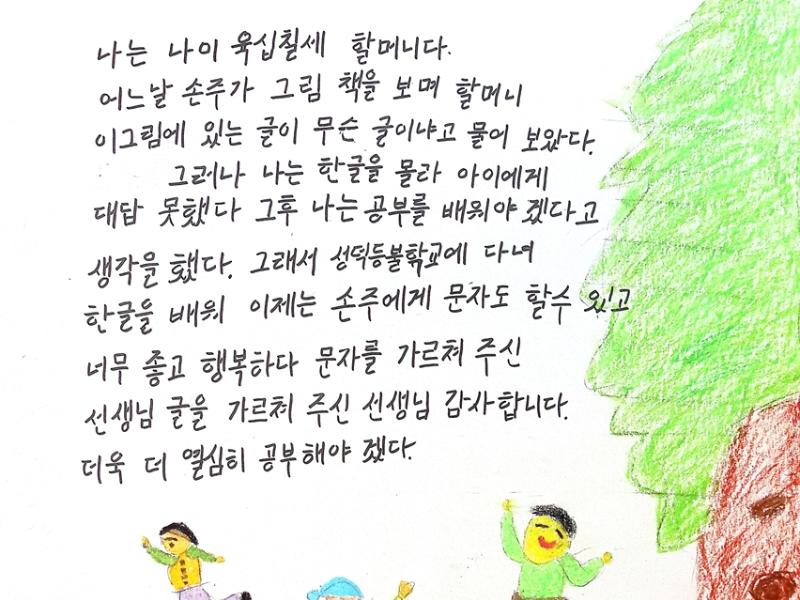 나는 나이 육십칠세 할머니다.
어느날 손주가 그림 책을 보며 할머니
이그림에 있는 글이 무슨 글이냐고 물어 보았다.
그러나 나는 한글을 몰라 아이에게
대답 못했다 그후 나는 공부를 배워야 겠다고
생각을 했다. 그래서 성덕등불학교에 다녀
한글을 배워 이제는 손주에게 문자도 할수 있고
너무 좋고 행복하다 문자를 가르쳐 주신
선생님 글을 가르쳐 주신 선생님 감사합니다.
더욱 더 열심히 공부해야 겠다.